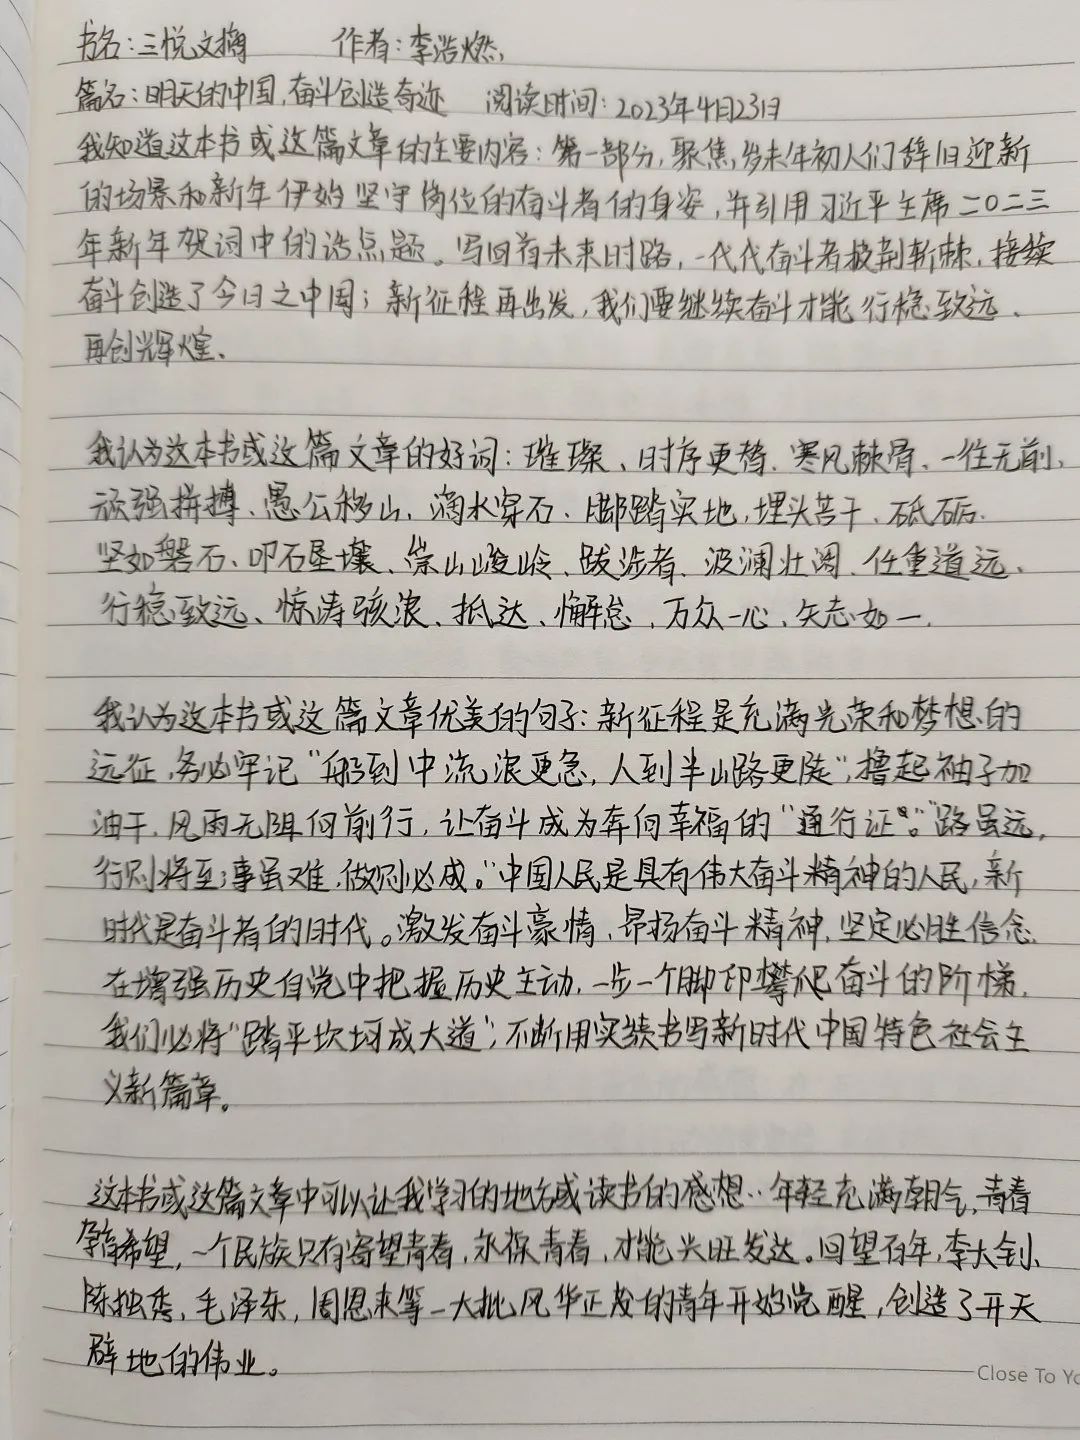 书名：三悦文摘 作者：李浩燃、
篇名：明天的中国，奋斗创造奇迹 阅读时间：2023年4月23日
我知道这本书或这篇文章的主要内容：第一部分，聚焦，岁末年初人们辞旧迎新
的场景和新年伊始坚守岗位的奋斗者的身姿，并引用习近平主席二〇二三
年新年贺词中的话点题。写回首未来时路，一代代奋斗者披荆斩棘，接续
奋斗创造了今日之中国；新征程再出发，我们要继续奋斗才能行稳致远、
再创辉煌、
我认为这本书或这篇文章的好词：璀璨、时序更替、寒风棘骨、一往无前、
顽强拼搏、愚公移山、滴水穿石、脚踏实地，埋头苦干、砥砺、
坚如磐石、叩石垦壤、崇山峻岭、跋涉者、波澜壮阔、任重道远、
行稳致远、惊涛骇浪、抵达、懈怠、万众一心、矢志如一、
我认为这本书或这篇文章优美的句子：新征程是充满光荣和梦想的
远征，务必牢记“船到中流浪更急，人到半山路更陡”，撸起袖子加
油干，风雨无阻向前行，让奋斗成为奔向幸福的“通行证”。“路虽远，
行则将至；事虽难，做则必成。”中国人民是具有伟大奋斗精神的人民，新
时代是奋斗者的时代。激发奋斗豪情、昂扬奋斗精神，坚定必胜信念，
在增强历史自觉中把握历史主动，一步一个脚印攀爬奋斗的阶梯，
我们必将“踏平坎坷成大道”，不断用实绩书写新时代中国特色社会主
义新篇章。
这本书或这篇文章中可以让我学习的地方或读书的感想：年轻充满朝气，青春
孕育希望，一个民族只有寄望青春，永葆青春，才能兴旺发达。回望百年，李大钊、
陈独秀，毛泽东，周恩来等一大批风华正茂的青年开始觉醒，创造了开天
辟地的伟业。
Close To Yo